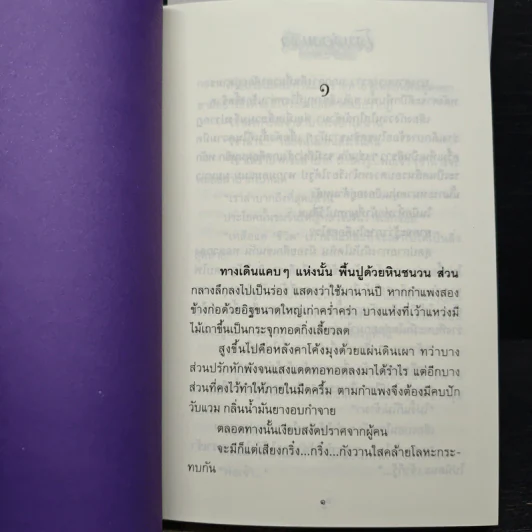 ๑
ทางเดินแคบๆ แห่งนั้น พื้นปูด้วยหินชนวน ส่วน
กลางลึกลงไปเป็นร่อง แสดงว่าใช้มานานปี หากกำแพงสอง
ข้างก่อด้วยอิฐขนาดใหญ่เก่าคร่ำคร่า บางแห่งที่เว้าแหว่งมี
ไม้เถาขึ้นเป็นกระจุกทอดกิ่งเลี้ยวลด
สูงขึ้นไปคือหลังคาโค้งมุงด้วยแผ่นดินเผา ทว่าบาง
ส่วนปรักหักพังจนแสงแดดทอทอดลงมาได้รำไร แต่อีกบาง
ส่วนที่คงไว้ทำให้ภายในมืดครึ้ม ตามกำแพงจึงต้องมีคบปัก
วับแวม กลิ่นน้ำมันยางอบกำจาย
ตลอดทางนั้นเงียบสงัดปราศจากผู้คน
จะมีก็แต่เสียงกริ๋ง...กริ๋ง...กังวานใสคล้ายโลหะกระ-
ทบกัน
๑